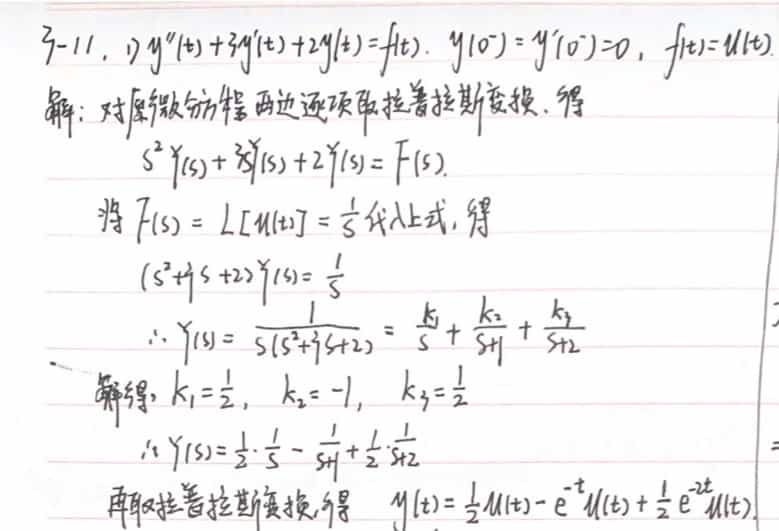 3-11. 1) y''(t)+3y'(t)+2y(t)=f(t). y(0⁻)=y'(0⁻)=0, f(t)=u(t).
解: 对原微分方程两边逐项取拉普拉斯变换. 得
s²Y(s)+3sY(s)+2Y(s)=F(s).
将 F(s)=L[u(t)]=1/s 代入上式, 得
(s²+3s+2)Y(s)=1/s
∴ Y(s)=1/(s(s²+3s+2))=k₁/s+k₂/(s+1)+k₃/(s+2)
解得, k₁=1/2, k₂=-1, k₃=1/2
∴ Y(s)=1/2·1/s-1/(s+1)+1/2·1/(s+2)
再取拉普拉斯变换, 得 y(t)=1/2u(t)-e^{-t}u(t)+1/2e^{-2t}u(t)